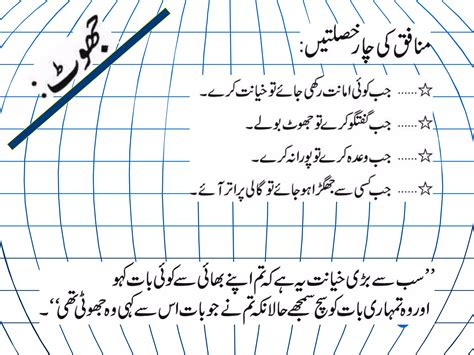 جھوٹ:
منافق کی چار خصلتیں:
☆...... جب کوئی امانت رکھی جائے تو خیانت کرے۔
☆...... جب گفتگو کرے تو جھوٹ بولے۔
☆...... جب وعدہ کرے تو پورا نہ کرے۔
☆...... جب کسی سے جھگڑا ہو جائے تو گالی پر اتر آئے۔
’’سب سے بڑی خیانت یہ ہے کہ تم اپنے بھائی سے کوئی بات کہو
اور وہ تمہاری بات کو سچ سمجھے حالانکہ تم نے جو بات اس سے کہی وہ جھوٹی تھی‘‘۔